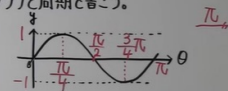 と周期を書こう。
π
y
1
π/2
3/4 π
θ
π/4
π
-1